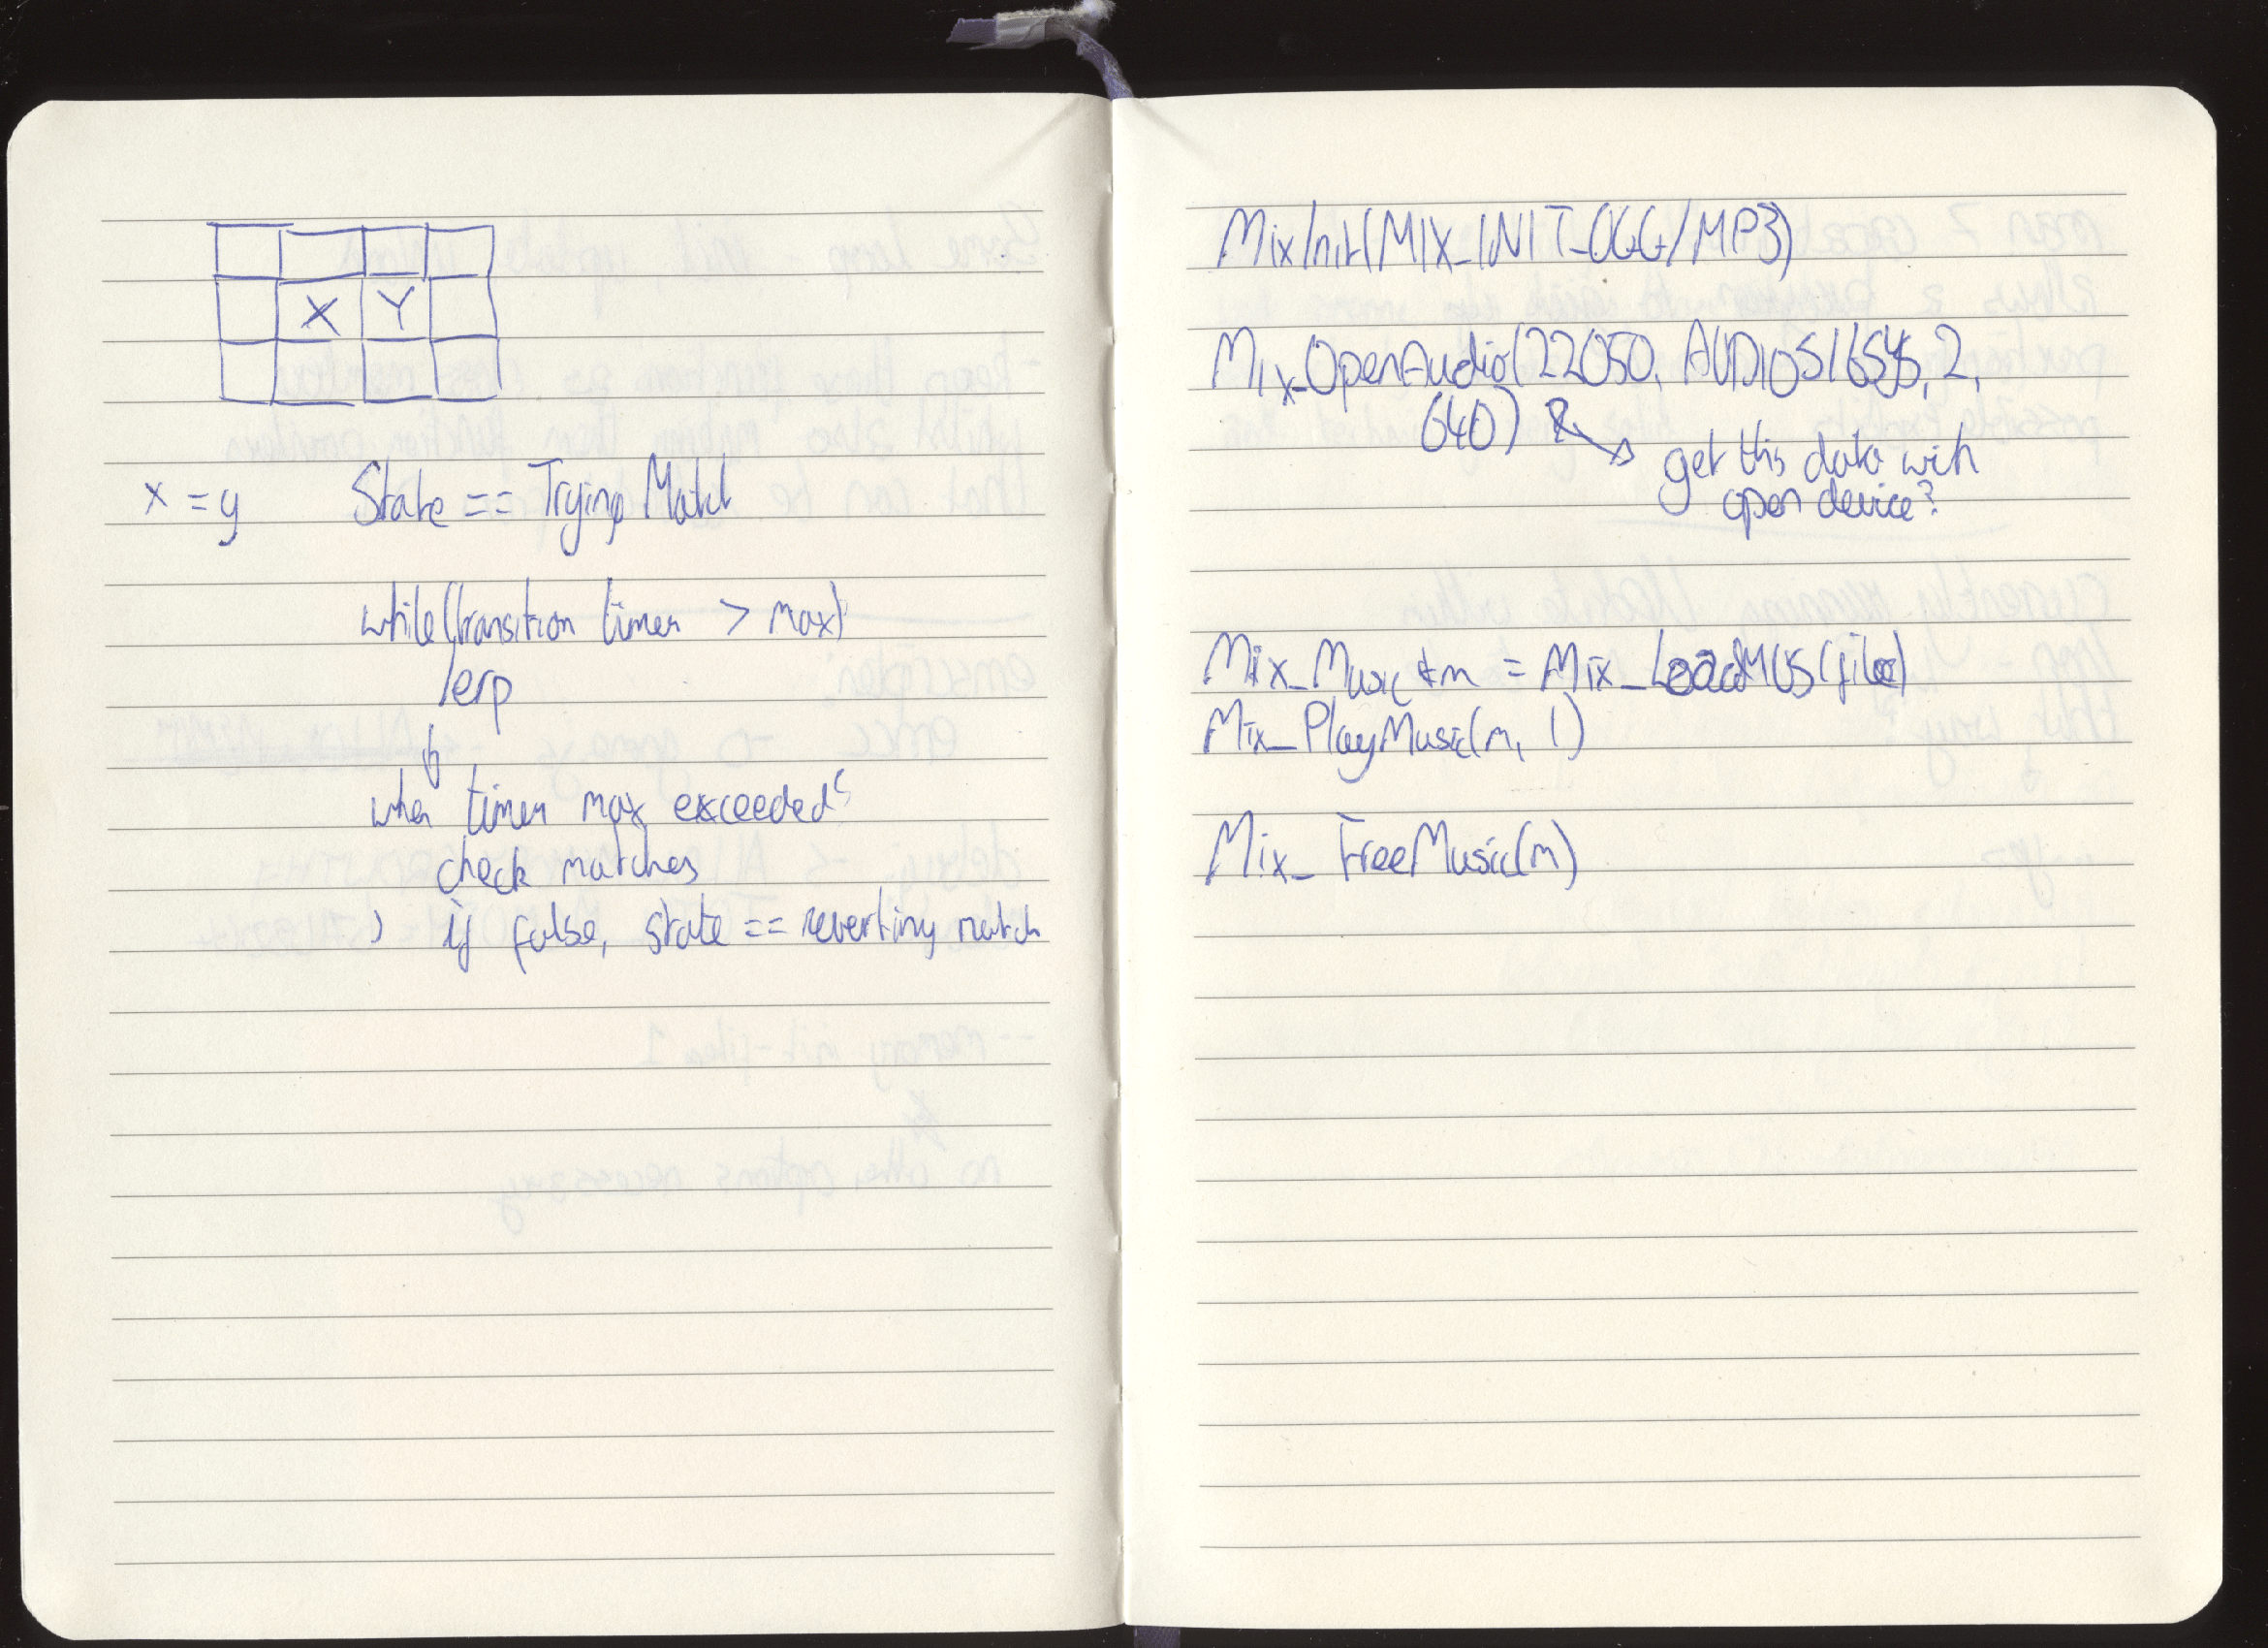 X Y
x = y State == Trying Match
while(transition timer > max)
lerp
when timer max exceeded
check matches
if false, state == reverting match
Mix Init(MIX_INIT_OGG/MP3)
Mix_OpenAudio(22050, AUDIOS16SYS, 2,
640)
get this data with
open device?
Mix_Music *m = Mix_LoadMUS(file)
Mix_PlayMusic(m, 1)
Mix_FreeMusic(m)